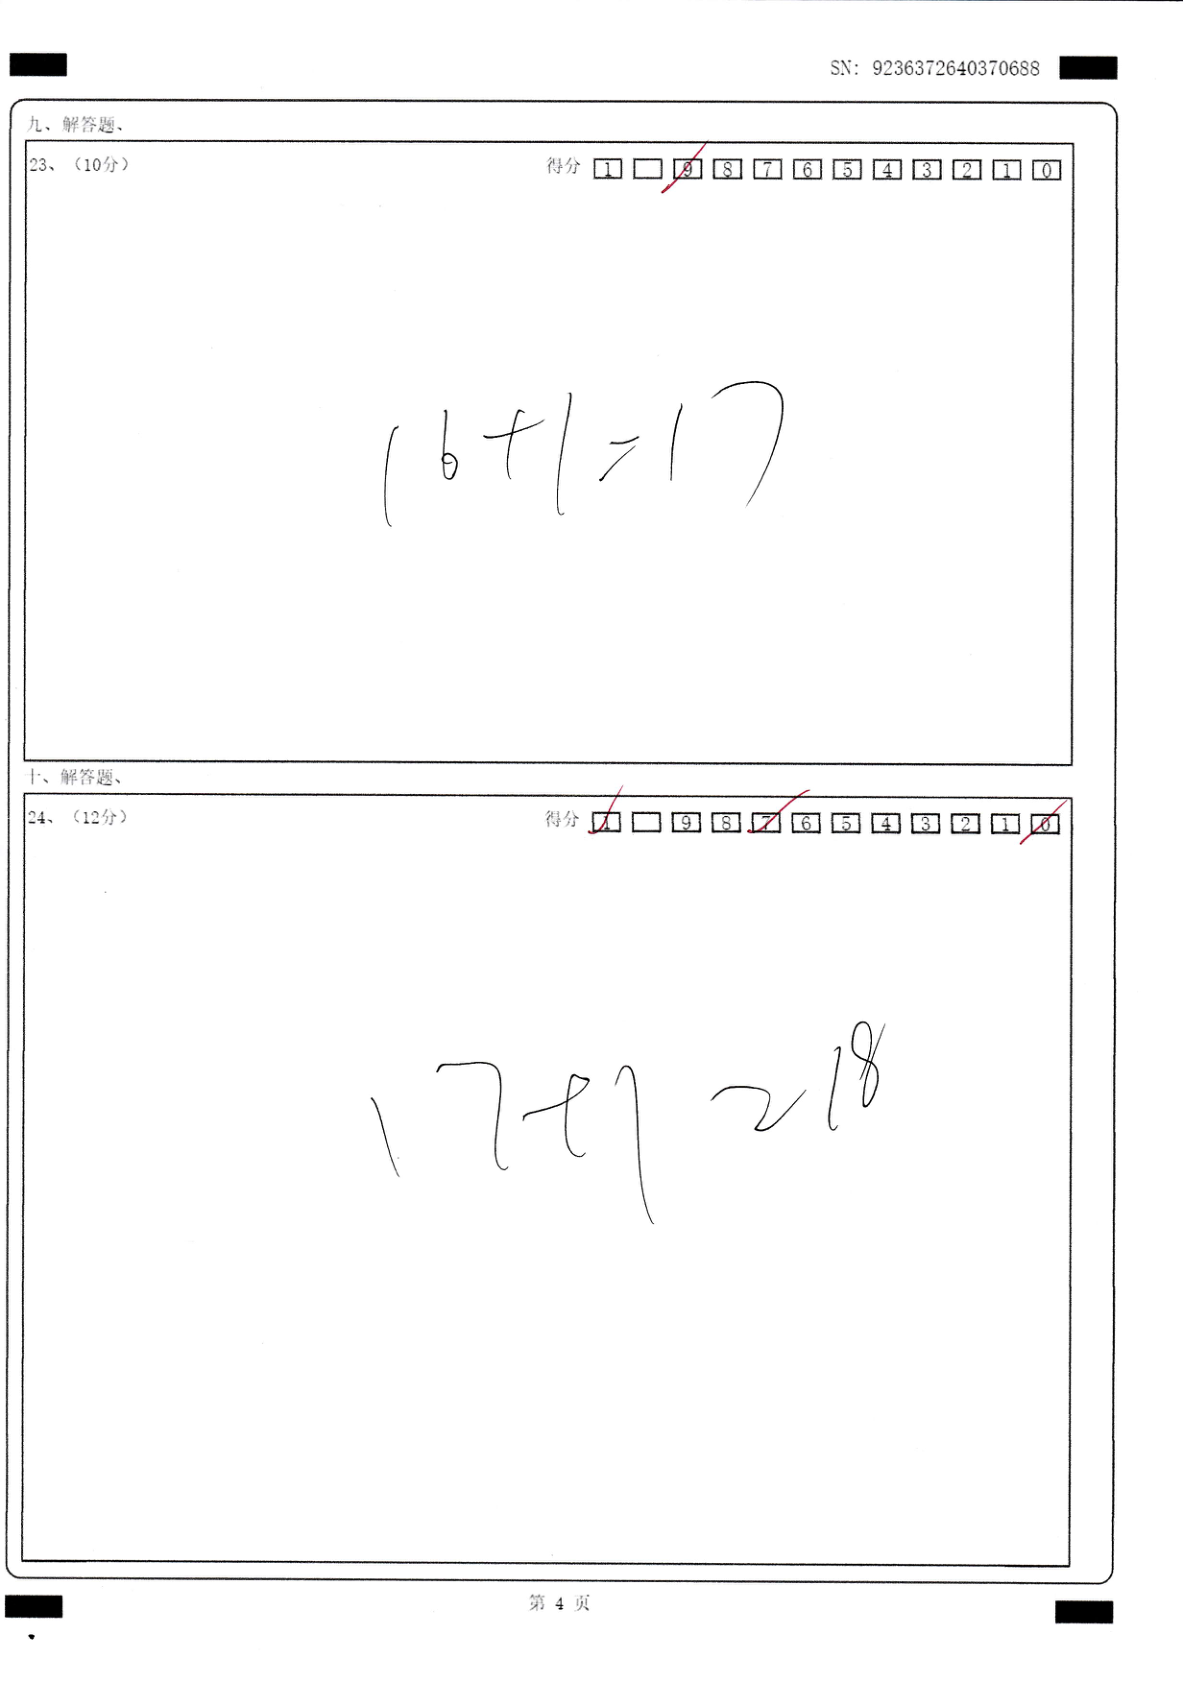 SN: 9236372640370688
九、解答题、
23、（10分） 得分 1 9 8 7 6 5 4 3 2 1 0
16+1=17
十、解答题、
24、（12分） 得分 1 9 8 7 6 5 4 3 2 1 0
17+1=18
第 4 页